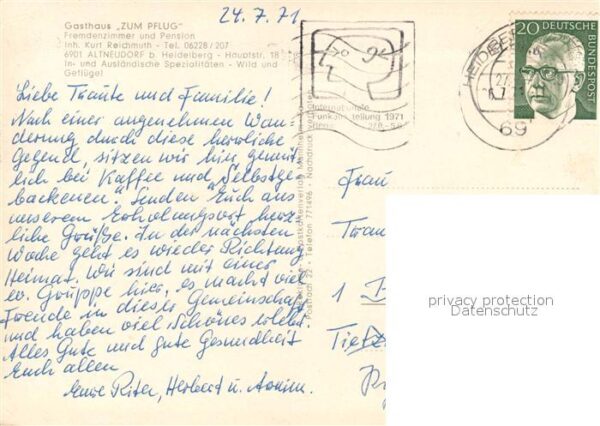 24.7.71
Gasthaus „ZUM PFLUG"
Fremdenzimmer und Pension
Inh. Kurt Reichmuth - Tel. 06228 / 207
6901 ALTNEUDORF b. Heidelberg - Hauptstr. 18
In- und Ausländische Spezialitäten - Wild und
Geflügel
Liebe Traute und Familie!
Nach einer angenehmen Wan-
derung durch diese herrliche
Gegend, sitzen wir hier gemüt-
lich bei Kaffee und „Selbstge-
backenen". Senden Euch aus
unserem Erholungsort herz-
liche Grüße. In der nächsten
Woche geht es wieder Richtung
Heimat. Wir sind mit einer
ev. Gruppe hier, es macht viel
Freude in dieser Gemeinschaft
und haben viel Schönes erlebt.
Alles Gute und gute Gesundheit
Euch allen
Eure Herbert u.
Internationale
Funkausstellung 1971
Postfach 22 - Telefon 771496 - Nachdruck verboten
HEIDELBERG
69
20 DEUTSCHE
BUNDESPOST
Frau
Trau
1 B
privacy protection
Datenschutz